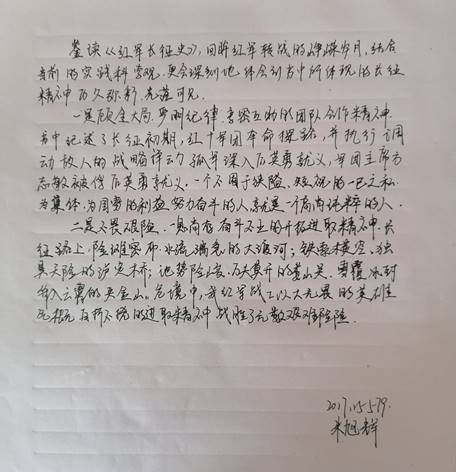 鉴读《红军长征史》,回眸红军转战的峥嵘岁月,结合
当前的实践科学观,更会深刻地体会到书中所体现的长征
精神历久弥新,光芒可见。
一是顾全大局、严明纪律、亲密互助的团队合作精神。
书中记述了长征初期,红十军团奉命探路,并执行调
动敌人的战略行动,孤军深入后英勇就义,军团主席方
志敏被俘后英勇就义。一个不囿于狭隘、短视的一己之私,
为集体、为国家的利益努力奋斗的人,就是一个高尚纯粹的人。
二是不畏艰险、勇敢奋斗不止的开拓进取精神。长
征路上,险难密布,水流湍急的大渡河;铁索横空、独
具天险的泸定桥;地势险峻、万夫莫开的娄山关、雪覆冰封
耸入云霄的夹金山。危境中,我红军战士以大无畏的英雄
气概、百折不挠的进取精神战胜了无数艰难险阻。
米旭辉